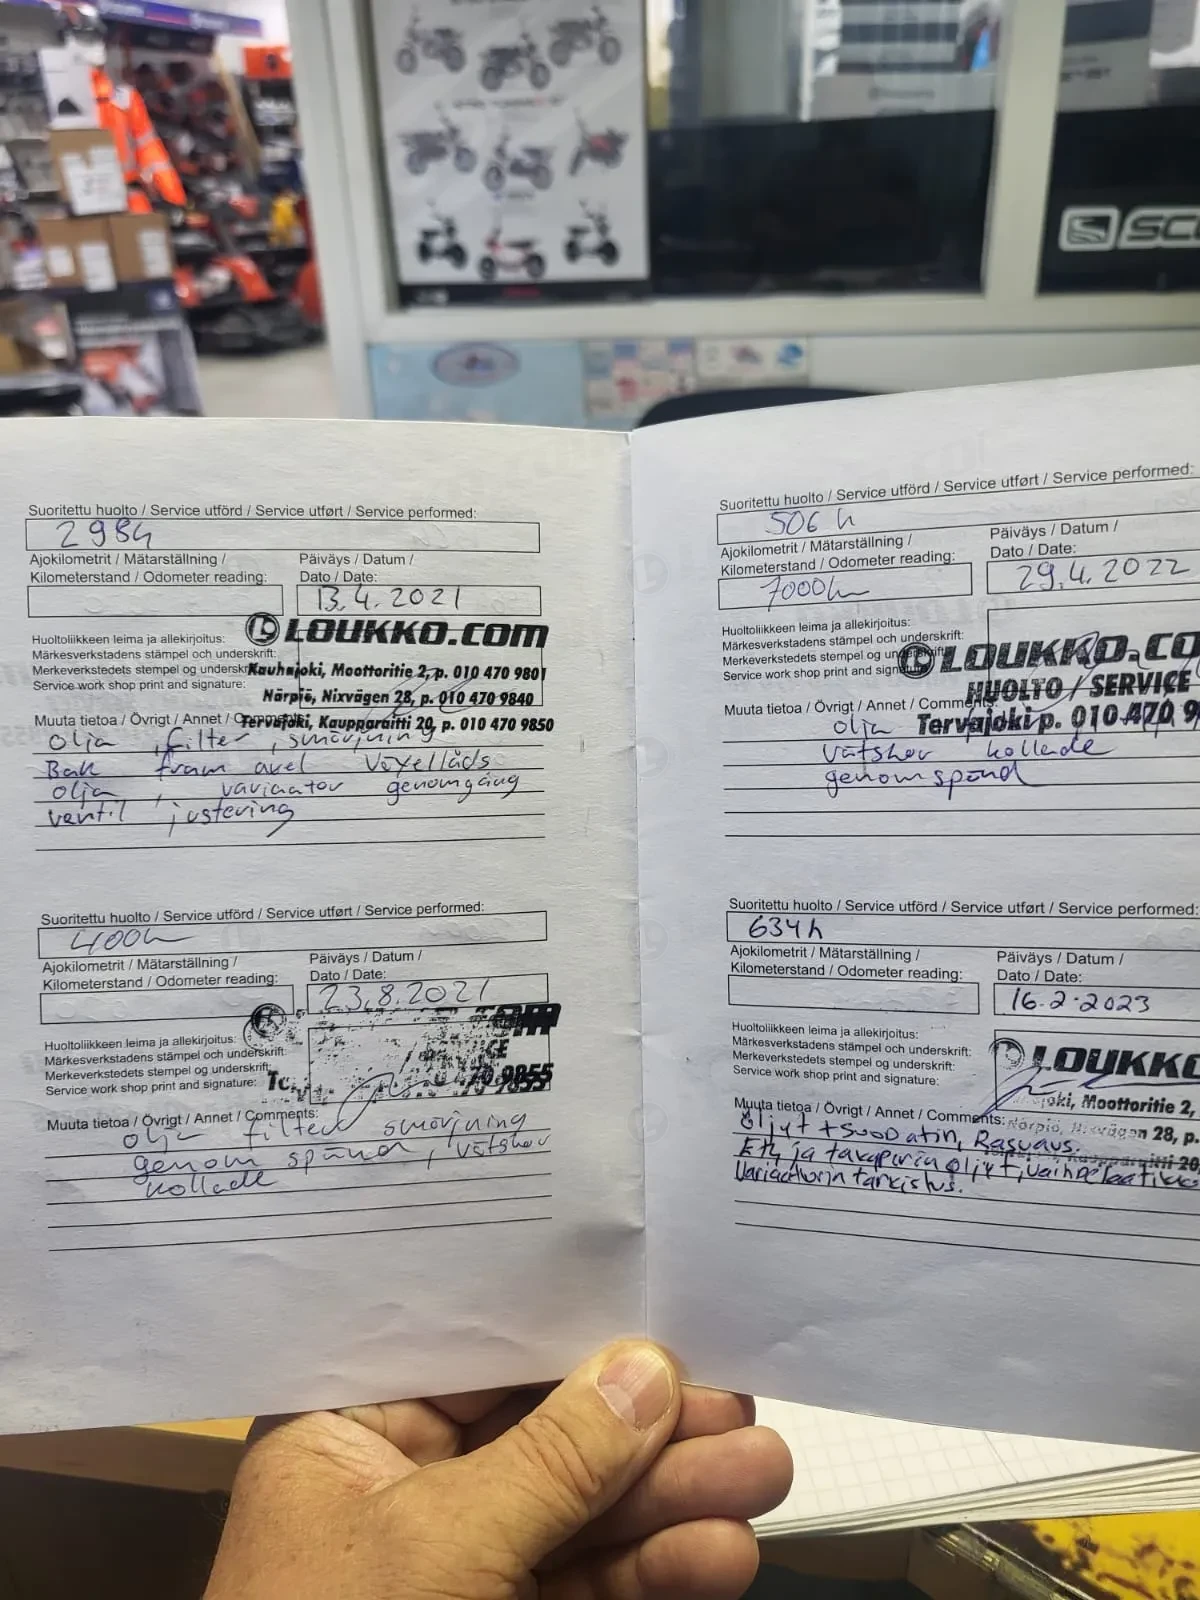 SCO
Suoritettu huolto / Service utförd / Service utført / Service performed:
298h
Ajokilometrit / Mätarställning /
Kilometerstand / Odometer reading:
Päiväys / Datum /
Dato / Date:
13.4.2021
Huoltoliikkeen leima ja allekirjoitus:
Märkesverkstadens stämpel och underskrift:
Merkeverkstedets stempel og underskrift:
Service work shop print and signature:
LOUKKO.COM
Kauhajoki, Moottoritie 2, p. 010 470 9801
Närpiö, Nixvägen 28, p. 010 470 9840
Tervajoki, Kaupparaitti 20, p. 010 470 9850
Muuta tietoa / Övrigt / Annet / Comments:
olja, filter, smörjning
Bak fram axel växellåds
olja, variaator genomgång
ventil justering
Suoritettu huolto / Service utförd / Service utført / Service performed:
400h
Ajokilometrit / Mätarställning /
Kilometerstand / Odometer reading:
Päiväys / Datum /
Dato / Date:
23.8.2021
Huoltoliikkeen leima ja allekirjoitus:
Märkesverkstadens stämpel och underskrift:
Merkeverkstedets stempel og underskrift:
Service work shop print and signature:
70 9855
Muuta tietoa / Övrigt / Annet / Comments:
olja filter smörjning
genom spänd, vätskor
kollade
Suoritettu huolto / Service utförd / Service utført / Service performed:
506 h
Ajokilometrit / Mätarställning /
Kilometerstand / Odometer reading:
7000km
Päiväys / Datum /
Dato / Date:
29.4.2022
Huoltoliikkeen leima ja allekirjoitus:
Märkesverkstadens stämpel och underskrift:
Merkeverkstedets stempel og underskrift:
Service work shop print and signature:
LOUKKO.CO
HUOLTO / SERVICE
Tervajoki p. 010 470 9
Muuta tietoa / Övrigt / Annet / Comments:
olja
vätskor kollade
genom spänd
Suoritettu huolto / Service utförd / Service utført / Service performed:
634h
Ajokilometrit / Mätarställning /
Kilometerstand / Odometer reading:
Päiväys / Datum /
Dato / Date:
16.2.2023
Huoltoliikkeen leima ja allekirjoitus:
Märkesverkstadens stämpel och underskrift:
Merkeverkstedets stempel og underskrift:
Service work shop print and signature:
LOUKKO
joki, Moottoritie 2,
Närpiö, Nixvägen 28, p.
Kaupparaitti 20,
Muuta tietoa / Övrigt / Annet / Comments:
Öljyt + Suodatin, Rasvaus.
Etu ja takaperän öljyt, vaihdelaatikko
Variaattorin tarkistus.